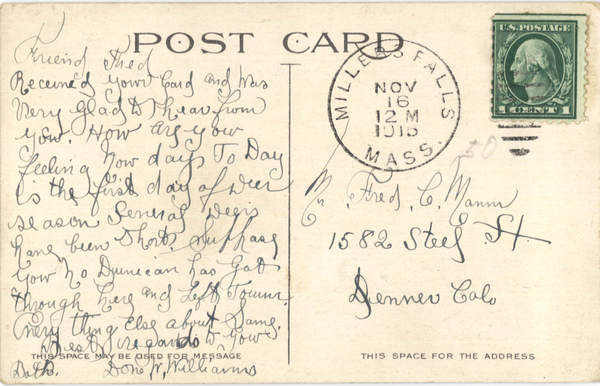 POST CARD
U.S. POSTAGE
1 CENT 1
MILLERS FALLS
NOV
16
12 M
1915
MASS.
50
Friend Fred
Received your Card and Was
Very glad to hear from
you. How are you
feeling now days To Day
is the first day of Deer
season Several Deers
have been Shot. suphase
you no Duncan has Got
through here and Left Town.
Every thing else about Same.
Best regards to you
Both. Dono W. Williams
Mr. Fred. C. Mann
1582 Steel St.
Denver Colo
THIS SPACE MAY BE USED FOR MESSAGE
THIS SPACE FOR THE ADDRESS